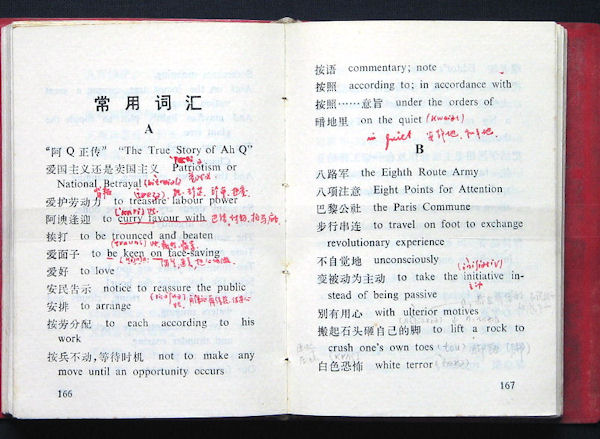 常用词汇
A
“阿Q正传” “The True Story of Ah Q”
爱国主义还是卖国主义 Patriotism or
National Betrayal
爱护劳动力 to treasure labour power
阿谀逢迎 to curry favour with
挨打 to be trounced and beaten
爱面子 to be keen on face-saving
爱好 to love
安民告示 notice to reassure the public
安排 to arrange
按劳分配 to each according to his
work
按兵不动,等待时机 not to make any
move until an opportunity occurs
166
按语 commentary; note
按照 according to; in accordance with
按照……意旨 under the orders of
暗地里 on the quiet
in quiet
B
八路军 the Eighth Route Army
八项注意 Eight Points for Attention
巴黎公社 the Paris Commune
步行串连 to travel on foot to exchange
revolutionary experience
不自觉地 unconsciously
变被动为主动 to take the initiative in-
stead of being passive
别有用心 with ulterior motives
搬起石头砸自己的脚 to lift a rock to
crush one's own toes
白色恐怖 white terror
167